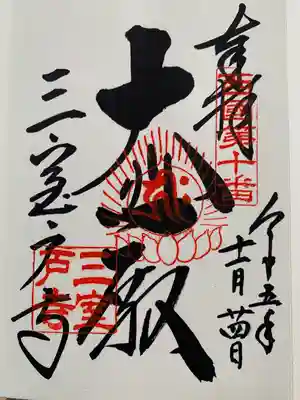 奉拝
西国第十番
令和五年
十一月廿四日
大悲殿
三室戸寺
三室
戸寺